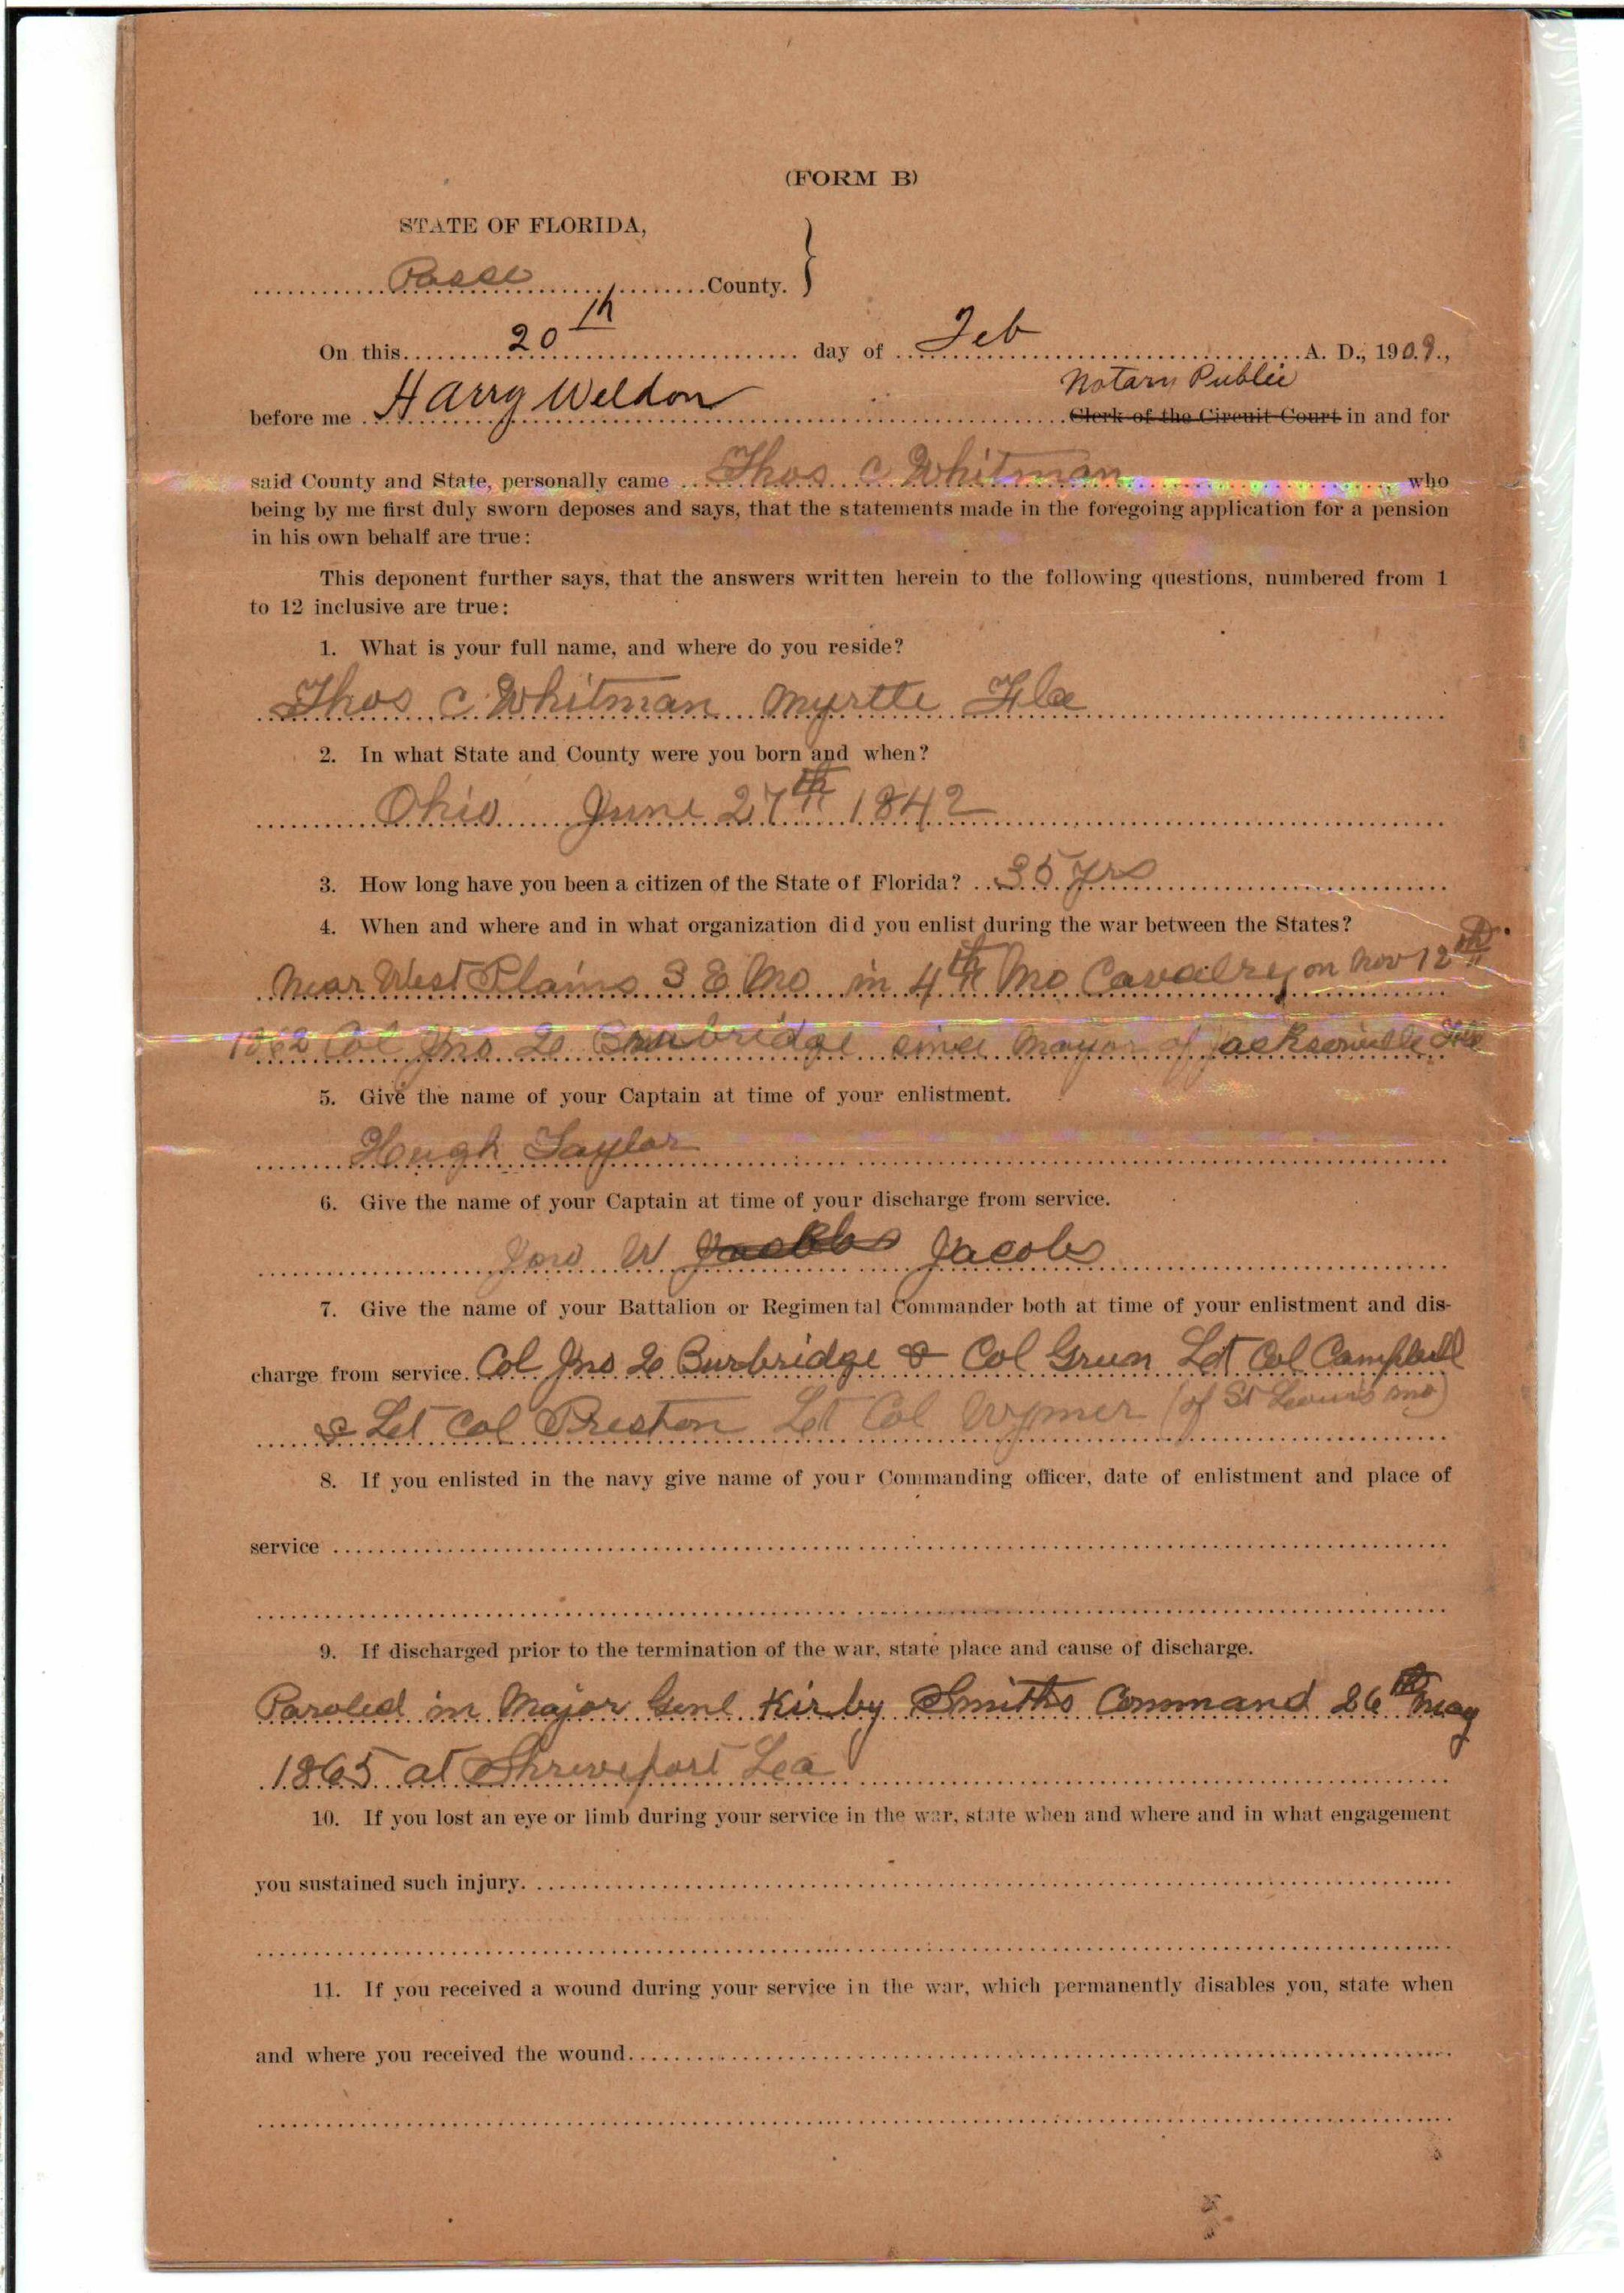 (FORM B)
STATE OF FLORIDA,
Pasco County.
On this 20th day of Feb A. D., 1909.,
Notary Public
before me Harry Weldon Clerk of the Circuit Court in and for
said County and State, personally came Thos C Whitman who
being by me first duly sworn deposes and says, that the statements made in the foregoing application for a pension
in his own behalf are true:
This deponent further says, that the answers written herein to the following questions, numbered from 1
to 12 inclusive are true:
1. What is your full name, and where do you reside?
Thos C Whitman Myrtle Fla
2. In what State and County were you born and when?
Ohio June 27th 1842
3. How long have you been a citizen of the State of Florida? 35 yrs
4. When and where and in what organization did you enlist during the war between the States?
Near West Plains S E Mo in 4th Mo Cavalry on Nov 12th
1862 Col Jno Q Burbridge since Mayor of Jacksonville Fla
5. Give the name of your Captain at time of your enlistment.
Hugh Taylor
6. Give the name of your Captain at time of your discharge from service.
W Jacobs Jacobs
7. Give the name of your Battalion or Regimental Commander both at time of your enlistment and dis-
charge from service. Col Jno Q Burbridge & Col Green Lt Col Campbell
& Lt Col Preston Lt Col Wymer (of St Louis Mo)
8. If you enlisted in the navy give name of your Commanding officer, date of enlistment and place of
service
9. If discharged prior to the termination of the war, state place and cause of discharge.
Paroled in Major Genl Kirby Smiths Command 26th May
1865 at Shreveport Lea
10. If you lost an eye or limb during your service in the war, state when and where and in what engagement
you sustained such injury.
11. If you received a wound during your service in the war, which permanently disables you, state when
and where you received the wound.